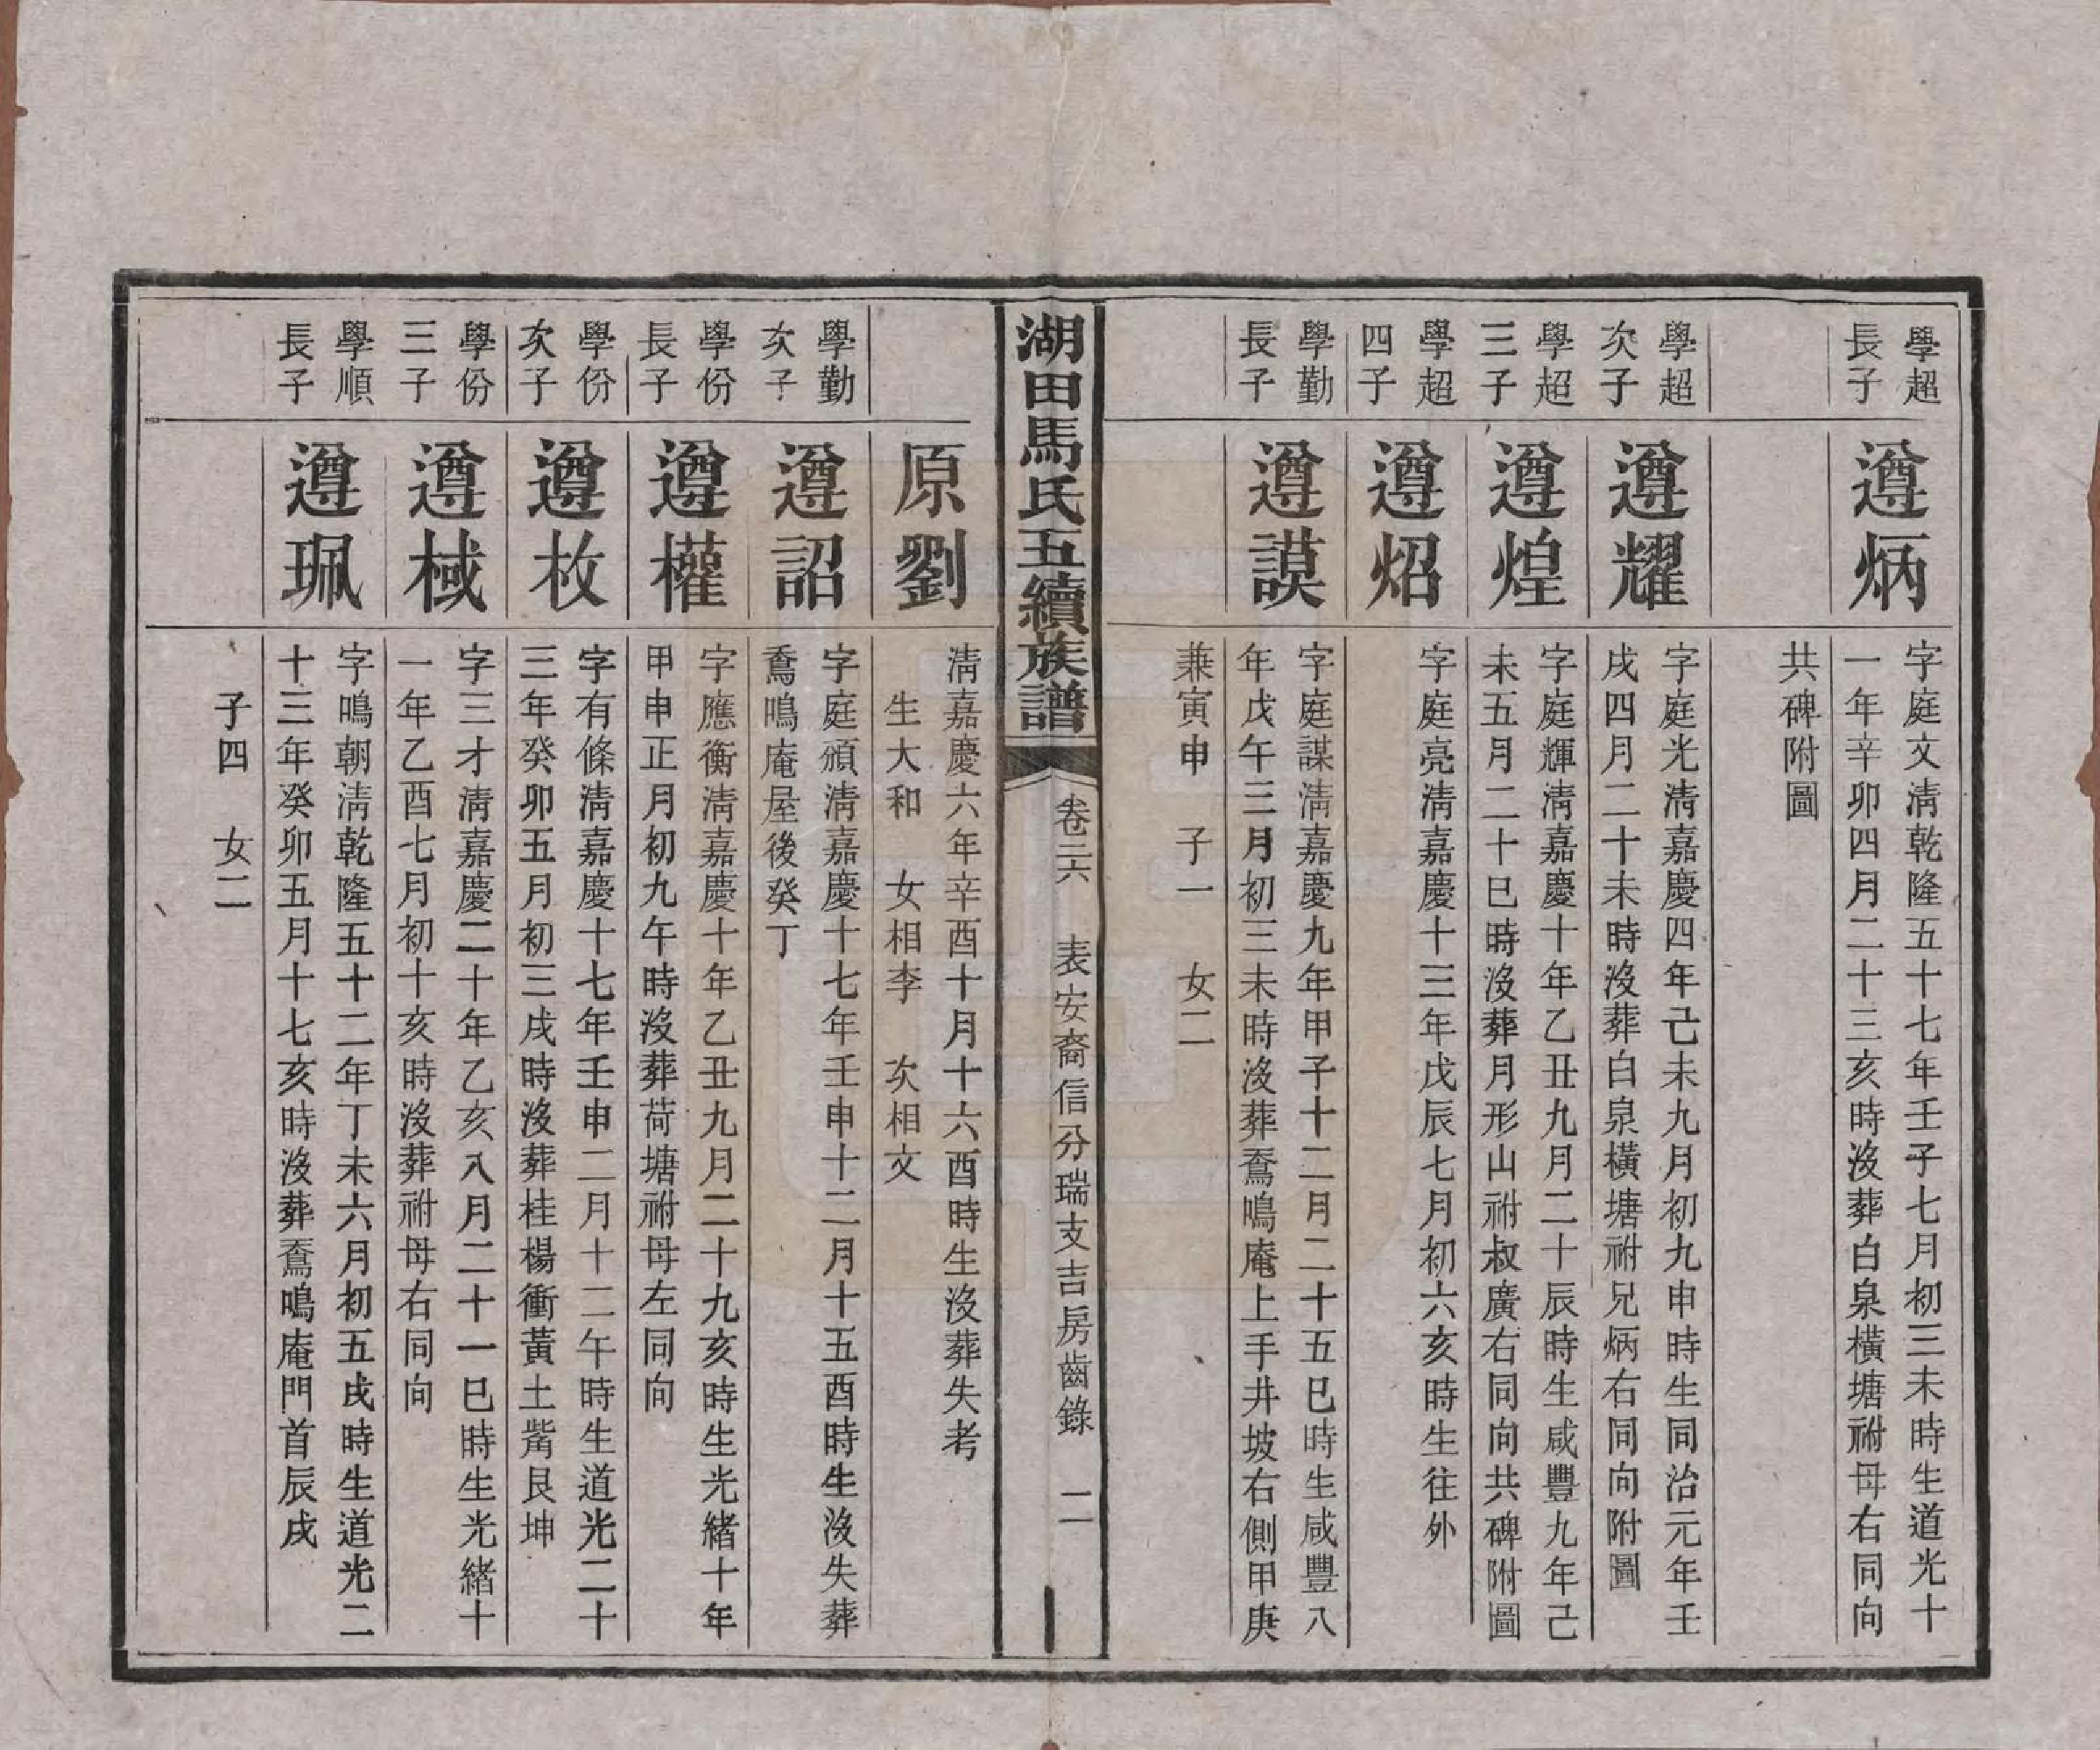 學超
長子
遵炳
字庭文清乾隆五十七年壬子七月初三未時生道光十
一年辛卯四月二十三亥時沒葬白泉橫塘祔母右同向
共碑附圖
學超
次子
遵耀
字庭光清嘉慶四年己未九月初九申時生同治元年壬
戌四月二十未時沒葬白泉橫塘祔兄炳右同向附圖
學超
三子
遵煌
字庭輝清嘉慶十年乙丑九月二十辰時生咸豐九年己
未五月二十巳時沒葬月形山祔叔廣右同向共碑附圖
學超
四子
遵炤
字庭亮清嘉慶十三年戊辰七月初六亥時生往外
學勤
長子
遵謨
字庭謀清嘉慶九年甲子十二月二十五巳時生咸豐八
年戊午三月初三未時沒葬鴌鳴庵上手井坡右側甲庚
兼寅申 子一 女二
湖田馬氏五續族譜
卷三六 表安裔信分瑞支吉房齒錄 二
原劉
清嘉慶六年辛酉十月十六酉時生沒葬失考
生大和 女相李 次相文
學勤
次子
遵詔
字庭頒清嘉慶十七年壬申十二月十五酉時生沒失葬
鴌鳴庵屋後癸丁
學份
長子
遵權
字應衡清嘉慶十年乙丑九月二十九亥時生光緒十年
甲申正月初九午時沒葬荷塘祔母左同向
學份
次子
遵枚
字有條清嘉慶十七年壬申二月十二午時生道光二十
三年癸卯五月初三戌時沒葬桂楊衝黃土嘴艮坤
學份
三子
遵棫
字三才清嘉慶二十年乙亥八月二十一巳時生光緒十
一年乙酉七月初十亥時沒葬祔母右同向
學順
長子
遵珮
字鳴朝清乾隆五十二年丁未六月初五戌時生道光二
十三年癸卯五月十七亥時沒葬鴌鳴庵門首辰戌
子四 女二